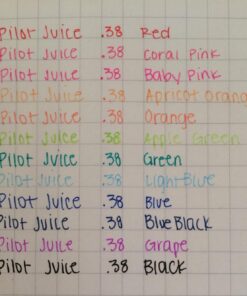 Pilot Juice .38 Red
Pilot Juice .38 Coral Pink
Pilot Juice .38 Baby Pink
Pilot Juice .38 Apricot Orang
Pilot Juice .38 Orange
Pilot Juice .38 Apple Green
Pilot Juice .38 Green
Pilot Juice .38 Light Blue
Pilot Juice .38 Blue
Pilot Juice .38 Blue Black
Pilot Juice .38 Grape
Pilot Juice .38 Black